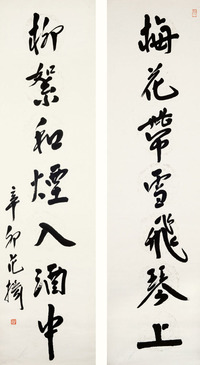 梅花帶雪飛琴上
柳絮和煙入酒中
辛卯